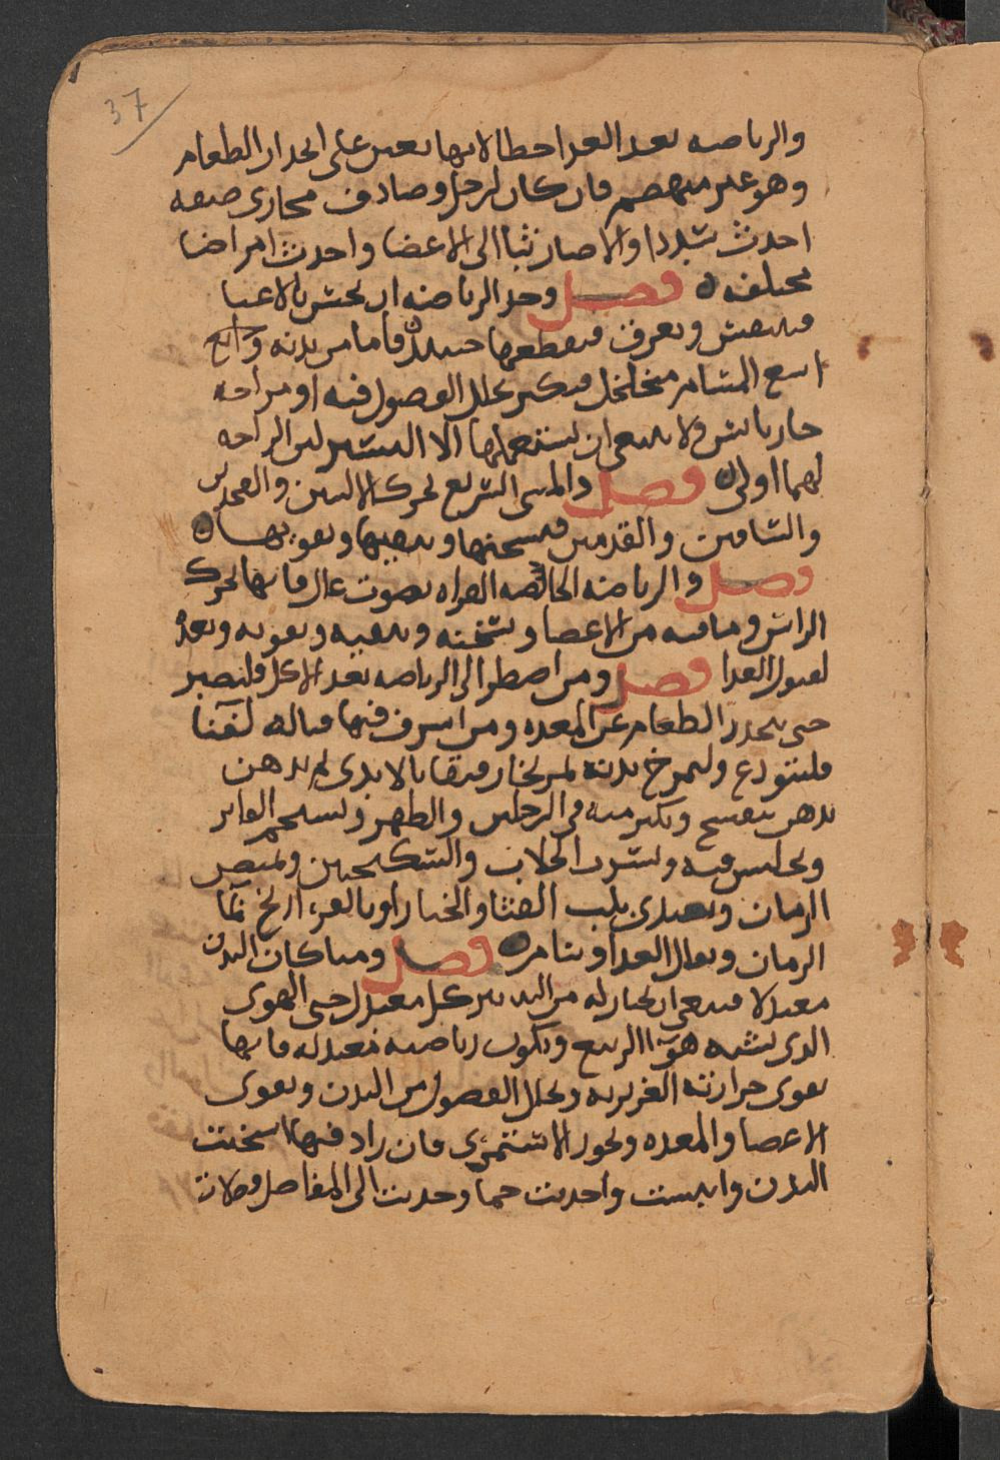 37
والرياضه بعد الغدا خطا لانها تعين على انحدار الطعام
وهو غير منهضم فان كان لزجا وصادف مجارى ضيقه
احدث سددا والا صار نيا الى الاعضا واحدث امراضا
مختلفه فصل وحد الرياضه ان يحس بالاعيا
فيتنفس ويعرق فيقطعها حينيذ فاما من بدنه
المسام متخلخل فيكثر تحلل الفضول فيه او مزاجه
حار يابس ولا ينبغى ان يستعملها الا اليسير لان الراحه
لهما اولى فصل والمشى السريع يحرك الاليتين والفخذين
والساقين والقدمين فيسخنها وينقيها ويقويها
فصل والرياضه الخاصه القراه بصوت عال فانها تحرك
الراس وما فيه من الاعضا وتسخنه وتنقيه وتقويه وتعده
لقبول الغدا فصل ومن اضطر الى الرياضه بعد الاكل فليصبر
حتى ينحدر الطعام عن المعده ومن اسرف فيها فناله
فليتودع وليمرخ بدنه رفقا بالايدى ثم يدهن
بدهن بنفسج ويكثر منه فى الرجلين والظهر ويستحم الفاتر
ويجلس فيه ويشرب الجلاب والسكنجبين ويمتص
الرمان ويغتدى بلب القثا والخيار او بالفراريخ بما
الرمان ويقلل الغدا وينام فصل ومتا كان البدن
معتدلا فينبغى ان يختار له من التدبير كل معتدل حتى الهوى
الذى يشبه هوآ الربيع وتكون رياضته معتدله فانها
تقوى حرارته الغريزيه وتحلل الفضول من البدن وتقوى
الاعضا والمعده وتجود الاستمرى فان زاد فيها اسخنت
البدن وايبست واحدثت حما وجذبت الى المفاصل فضلات